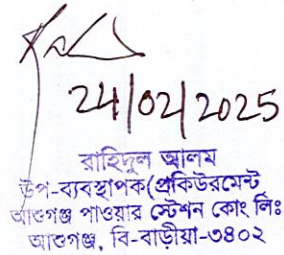 24/02/2025
রাহিদুল আলম
উপ-ব্যবস্থাপক(প্রকিউরমেন্ট
আশুগঞ্জ পাওয়ার স্টেশন কোং লিঃ
আশুগঞ্জ, বি-বাড়ীয়া-৩৪০২